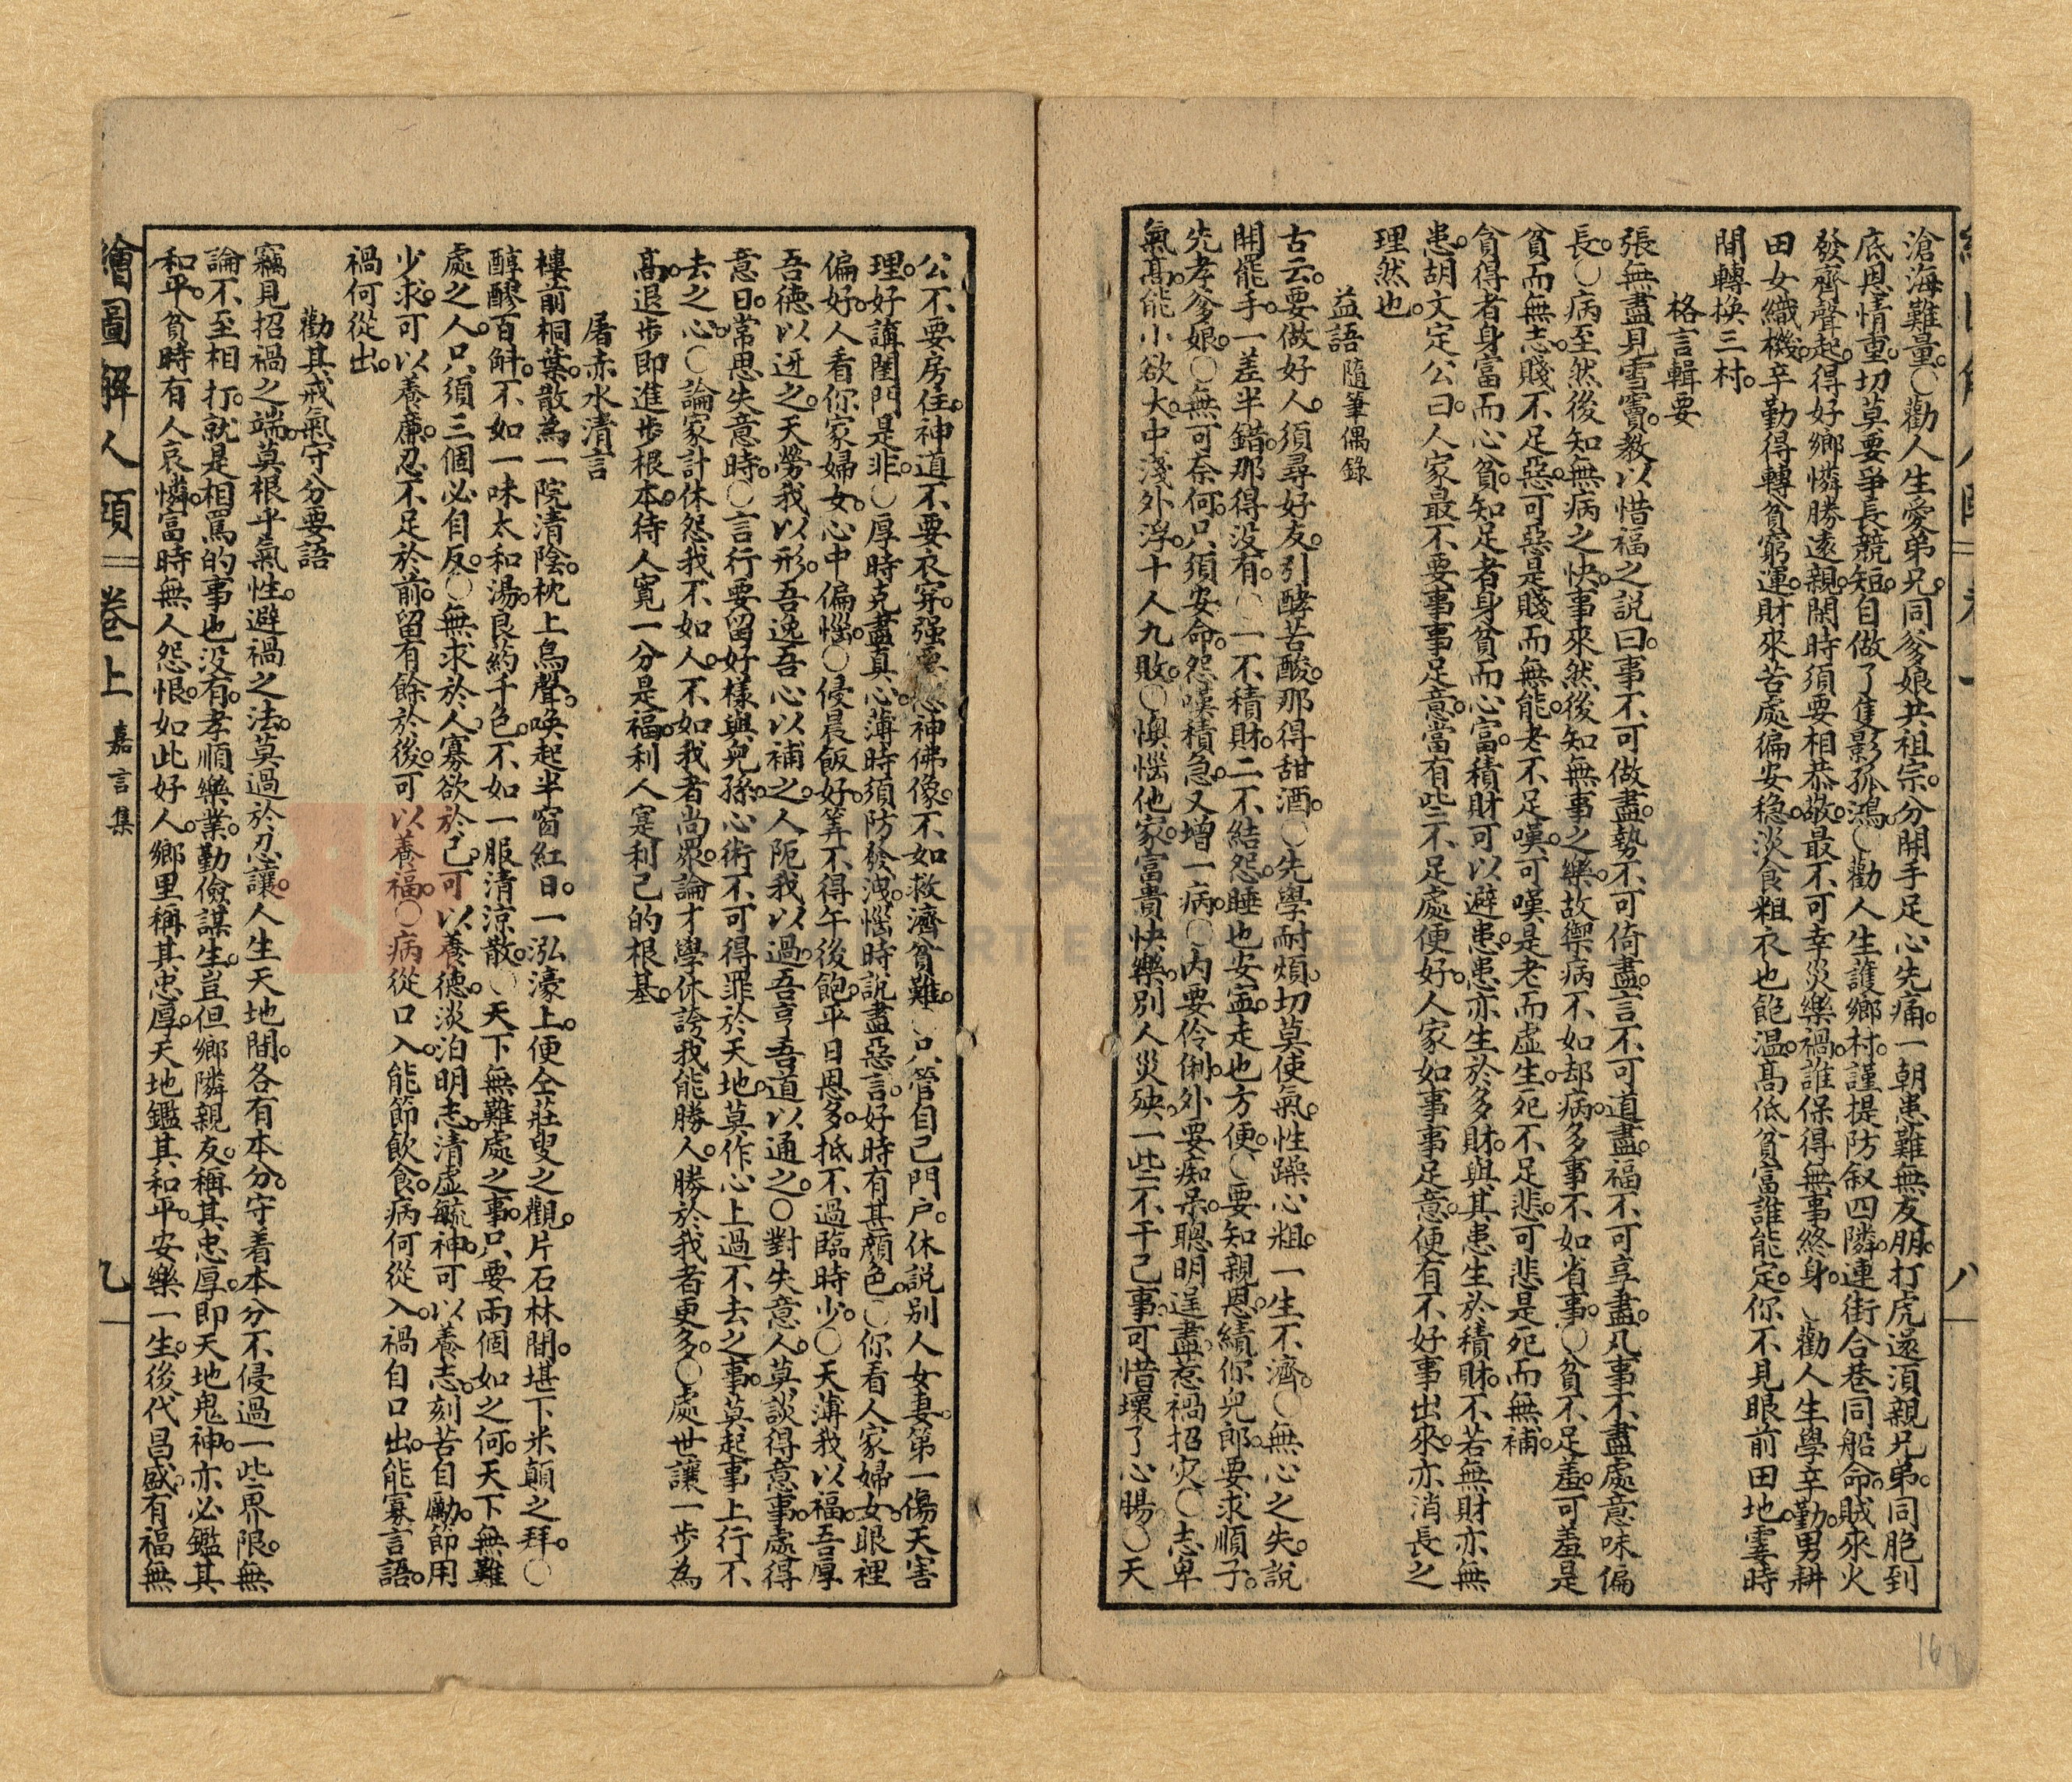 滄海難量。○勸人生愛弟兄。同爹娘共祖宗。分開手足心先痛。一朝患難無友朋。打虎還須親兄弟。同胞到
底恩情重。切莫要爭長競短。自做了隻影孤鴻。○勸人生護鄉村。謹提防叙四隣。連街合巷同船命。賊來火
發齊聲起。得好鄉憐勝遠親。閒時須要相恭敬。最不可幸災樂禍。誰保得無事終身。○勸人生學辛勤。男耕
田女織機。辛勤得轉貧窮運。財來苦處偏安穩。淡食粗衣也飽温。髙低貧富誰能定。你不見眼前田地。霎時
間轉換三村。
格言輯要
張無盡見雪竇。教以惜福之説曰。事不可做盡。勢不可倚盡。言不可道盡。福不可享盡。凡事不盡處意味偏
長。○病至然後知無病之快。事來然後知無事之樂。故禦病不如却病。多事不如省事。○貧不足羞。可羞是
貧而無志。賤不足惡。可惡是賤而無能。老不足嘆。可嘆是老而虛生。死不足悲。可悲是死而無補。
貪得者身富而心貧。知足者身貧而心富。積財可以避患。患亦生於多財。與其患生於積財。不若無財亦無
患。胡文定公曰。人家最不要事事足意。當有些不足處便好。人家如事事足意。便有不好事出來。亦消長之
理然也。
益語 隨筆偶錄
古云。要做好人。須尋好友。引酵苦酸。那得甜酒。○先學耐煩。切莫使氣。性躁心粗。一生不濟。○無心之失。說
開罷手。一差半錯。那得没有。○一不積財。二不結怨。睡也安寍。走也方便。○要知親恩。績你兒郎。要求順子。
先孝爹娘。○無可奈何。只須安命。怨嘆積急。又增一病。○内要伶俐。外要痴呆。聰明逞盡。惹禍招灾。○志卑
氣髙。能小欲大。中淺外浮。十人九敗。○懊惱他家富貴。快樂別人災殃。一些不干己事。可惜壞了心腸。○天
公不要房住。神道不要衣穿。强塑神佛像。不如救濟貧難。○只管自己門户。休説别人女妻。第一傷天害
理。好講閨門是非。○厚時克盡真心。薄時須防發洩。惱時説盡惡言。好時有甚顔色。○你看人家婦女。眼裡
偏好。人看你家婦女。心中偏惱。○侵晨飯好。筭不得午後飽。平日恩多。抵不過臨時少。○天薄我以福。吾厚
吾德以迓之。天勞我以形。吾逸吾心以補之。人阨我以過。吾亨吾道以通之。○對失意人。莫談得意事。處得
意日。常思失意時。○言行要留好樣與兒孫。心術不可得罪於天地。莫作心上過不去之事。莫起事上行不
去之心。○論家計休怨我不如人。不如我者尚眾。論才學休誇我能勝人。勝於我者更多。○處世讓一步為
髙。退步即進步根本。待人寬一分是福。利人寔利己的根基。
屠赤水清言
樓前桐葉。散為一院清陰。枕上鳥聲。喚起半窗紅日。一泓濠上。便仝莊叟之觀。片石林間。堪下米顛之拜。○
醇醪百斛。不如一味太和湯。良葯千色。不如一服清凉散。○天下無難處之事。只要兩個如之何。天下無難
處之人。只須三個必自反。○無求於人。寡欲於己。可以養德。淡泊明志。清虛毓神。可以養志。刻苦自勵。節用
少求。可以養廉。忍不足於前。留有餘於後。可以養福。○病從口入。能節飲食。病何從入。禍自口出。能寡言語。
禍何從出。
勸其戒氣守分要語
竊見招禍之端。莫根乎氣性。避禍之法。莫過於忍讓。人生天地間。各有本分。守着本分。不侵過一些界限。無
論不至相打。就是相罵的事也没有。孝順樂業。勤儉謀生。豈但鄉隣親友。稱其忠厚。即天地鬼神。亦必鑑其
和平。貧時有人哀憐。富時無人怨恨。如此好人。鄉里稱其忠厚。天地鑑其和平。安樂一生。後代昌盛。有福無
繪圖解人頤 卷上 嘉言集 九
八
16